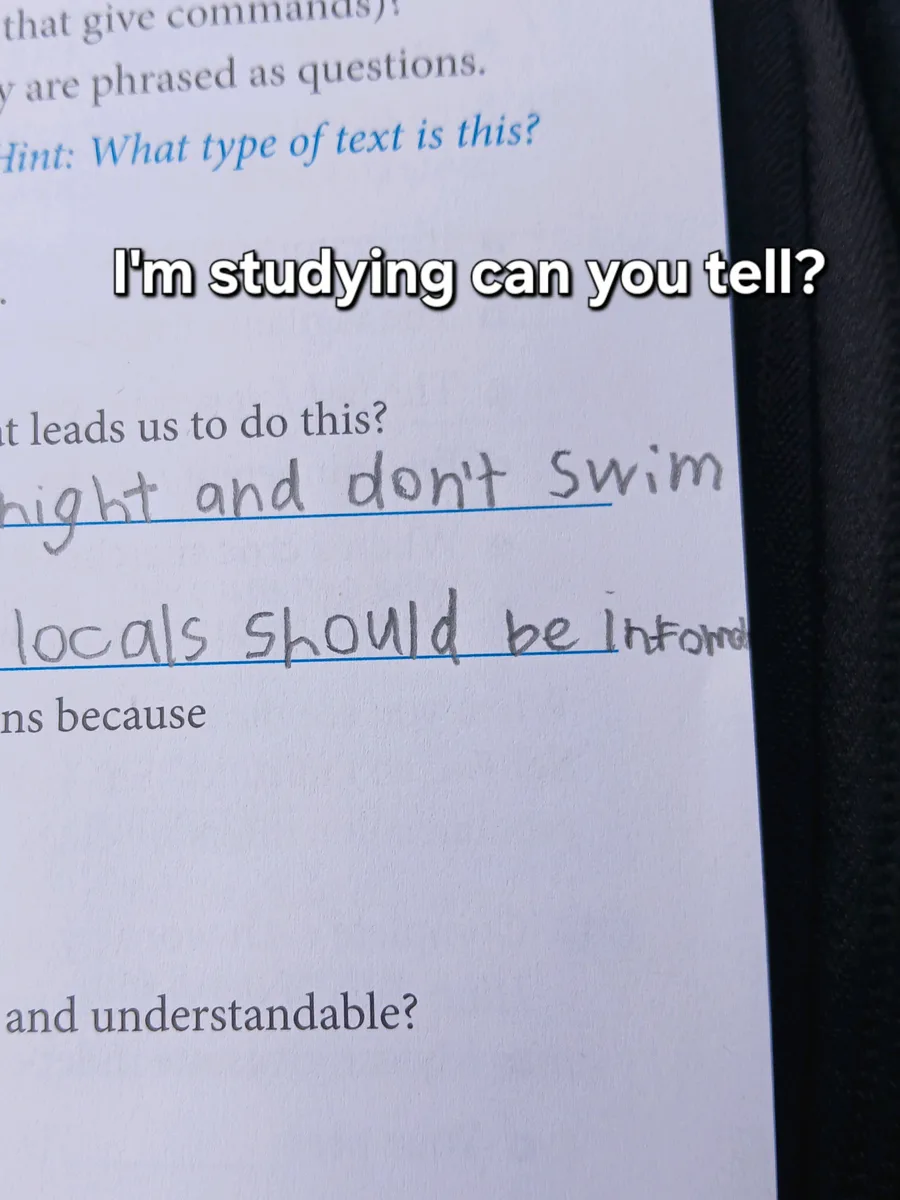 that give commands)?
y are phrased as questions.
Hint: What type of text is this?
I'm studying can you tell?
at leads us to do this?
night and don't swim
locals should be
ns because
and understandable?